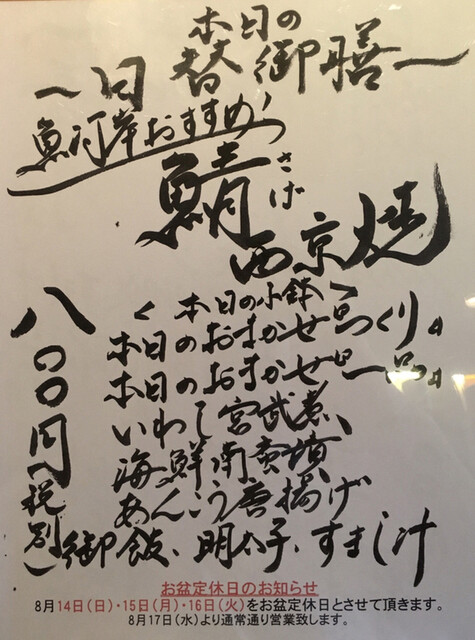 本日の
〜日替御膳〜
魚河岸おすすめ！
鯖さば
西京焼
＜本日の小鉢＞
本日のおまかせ品つくり
本日のおまかせ一品
いわし宮武煮
海鮮南蛮漬
あんこう唐揚げ
御飯、明太子、すまし汁
八〇〇円（税別）
お盆定休日のお知らせ
8月14日（日）・15日（月）・16日（火）をお盆定休日とさせて頂きます。
8月17日（水）より通常通り営業致します。